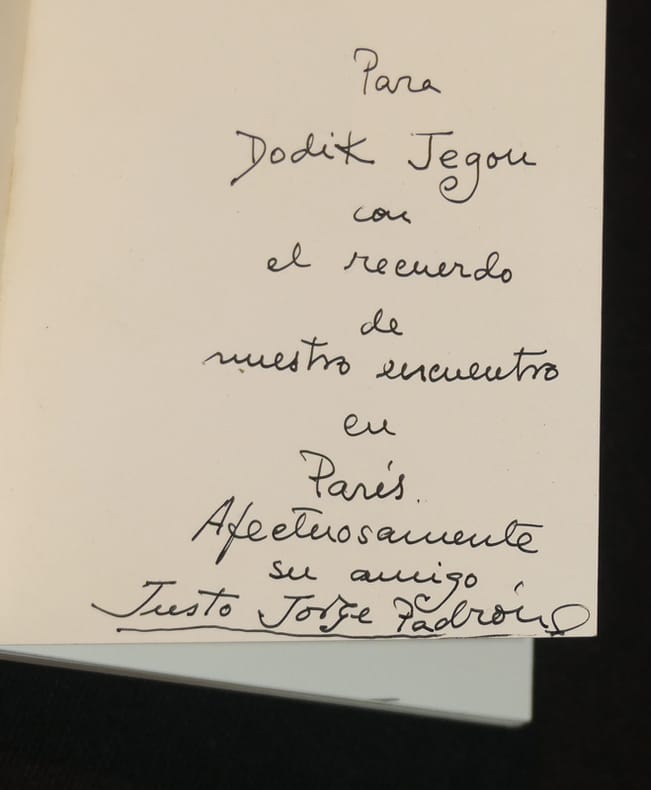 Para
Dodik Jegou
con
el recuerdo
de
nuestro encuentro
en
París.
Afectuosamente
su amigo
Justo Jorge Padrón